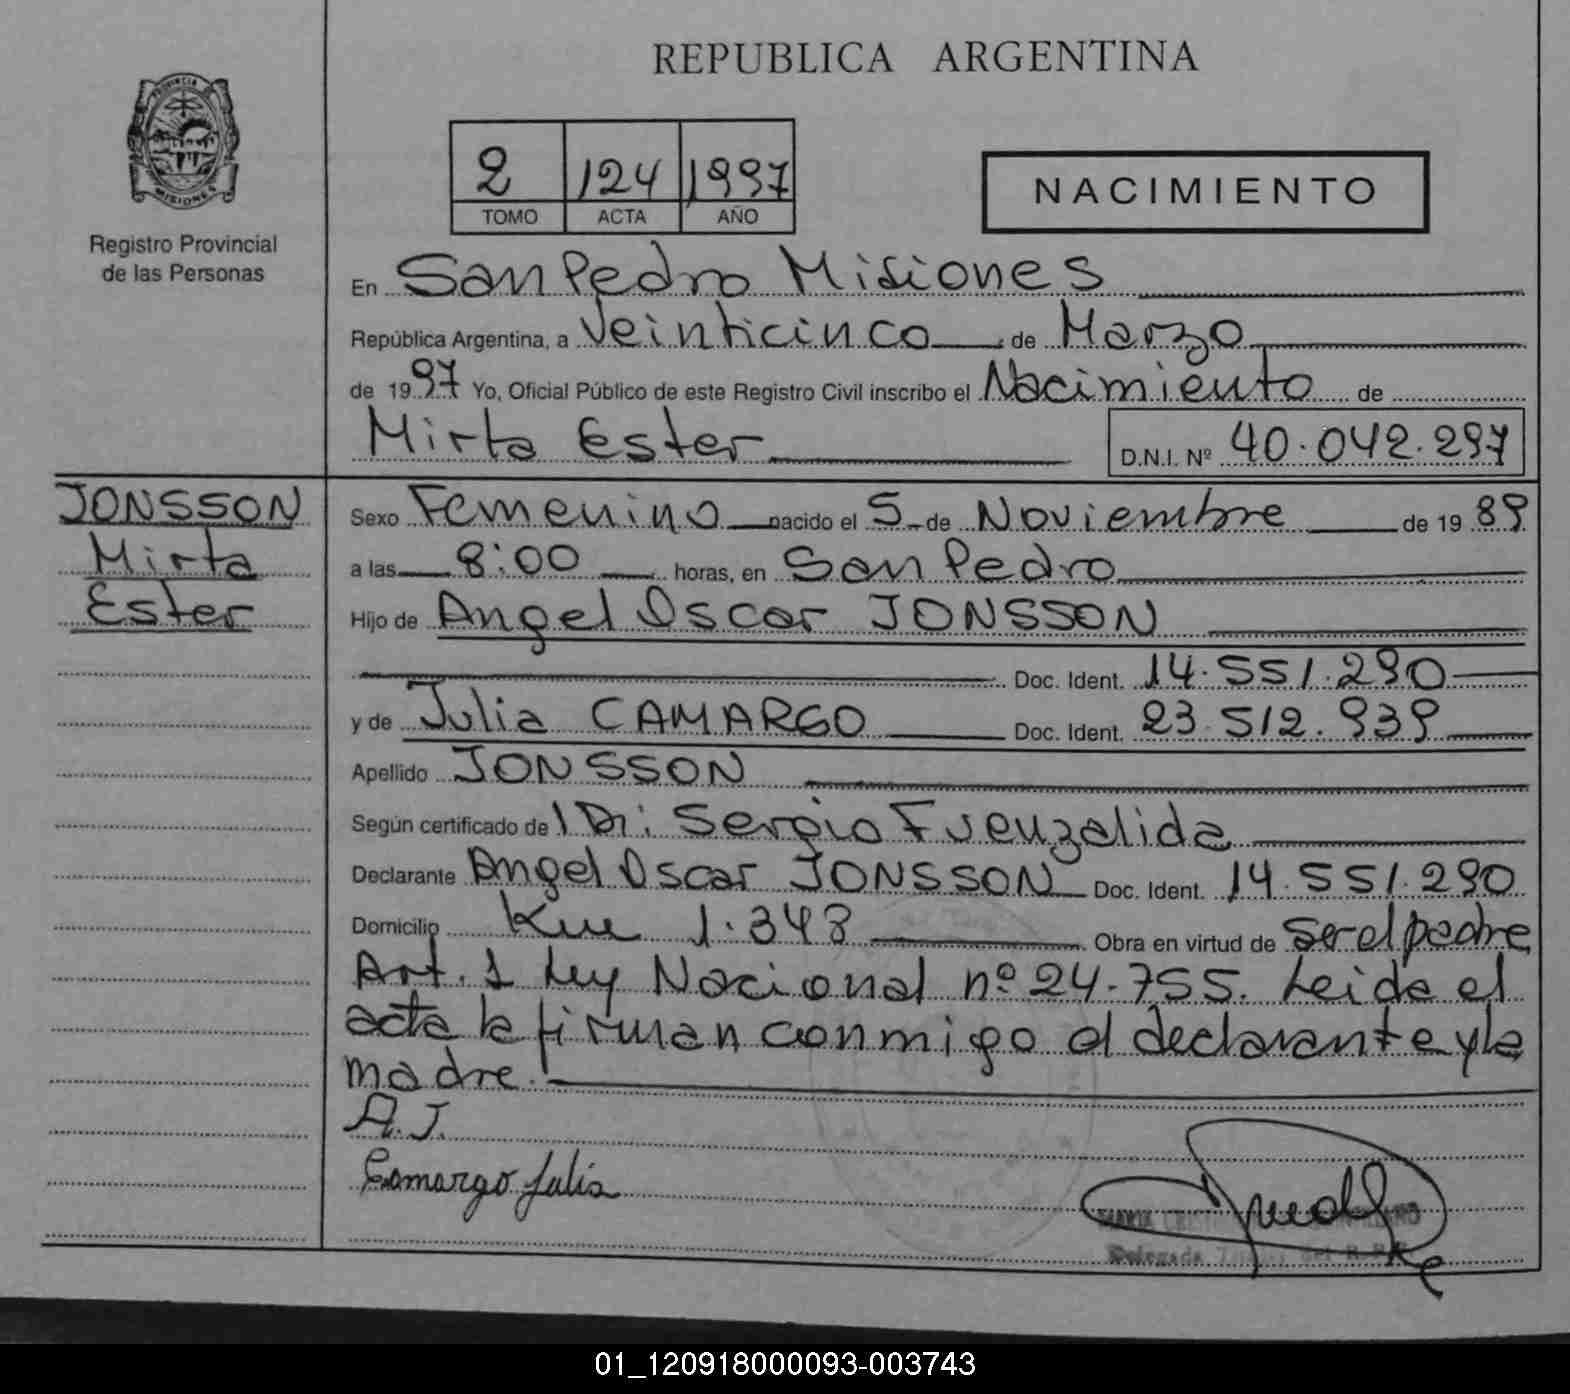 REPUBLICA ARGENTINA
PROVINCIA DE
MISIONES
Registro Provincial
de las Personas
2 124 1997
TOMO ACTA AÑO
NACIMIENTO
En San Pedro Misiones
República Argentina, a Veinticinco de Marzo
de 1997 Yo, Oficial Público de este Registro Civil inscribo el Nacimiento de
Mirta Ester D.N.I. Nº 40.042.297
JONSSON
Mirta
Ester
Sexo Femenino nacido el 5 de Noviembre de 1989
a las 8:00 horas, en San Pedro
Hijo de Angel Oscar JONSSON
Doc. Ident. 14.551.290
y de Julia CAMARGO Doc. Ident. 23.512.939
Apellido JONSSON
Según certificado de l Dr: Sergio Fuenzalida
Declarante Angel Oscar JONSSON Doc. Ident. 14.551.290
Domicilio Km 1.348 Obra en virtud de ser el padre
Art. 1 Ley Nacional nº 24.755. Leida el
acta la firman conmigo el declarante y la
madre.
A.J.
Camargo Julia
Delegada
01_120918000093-003743